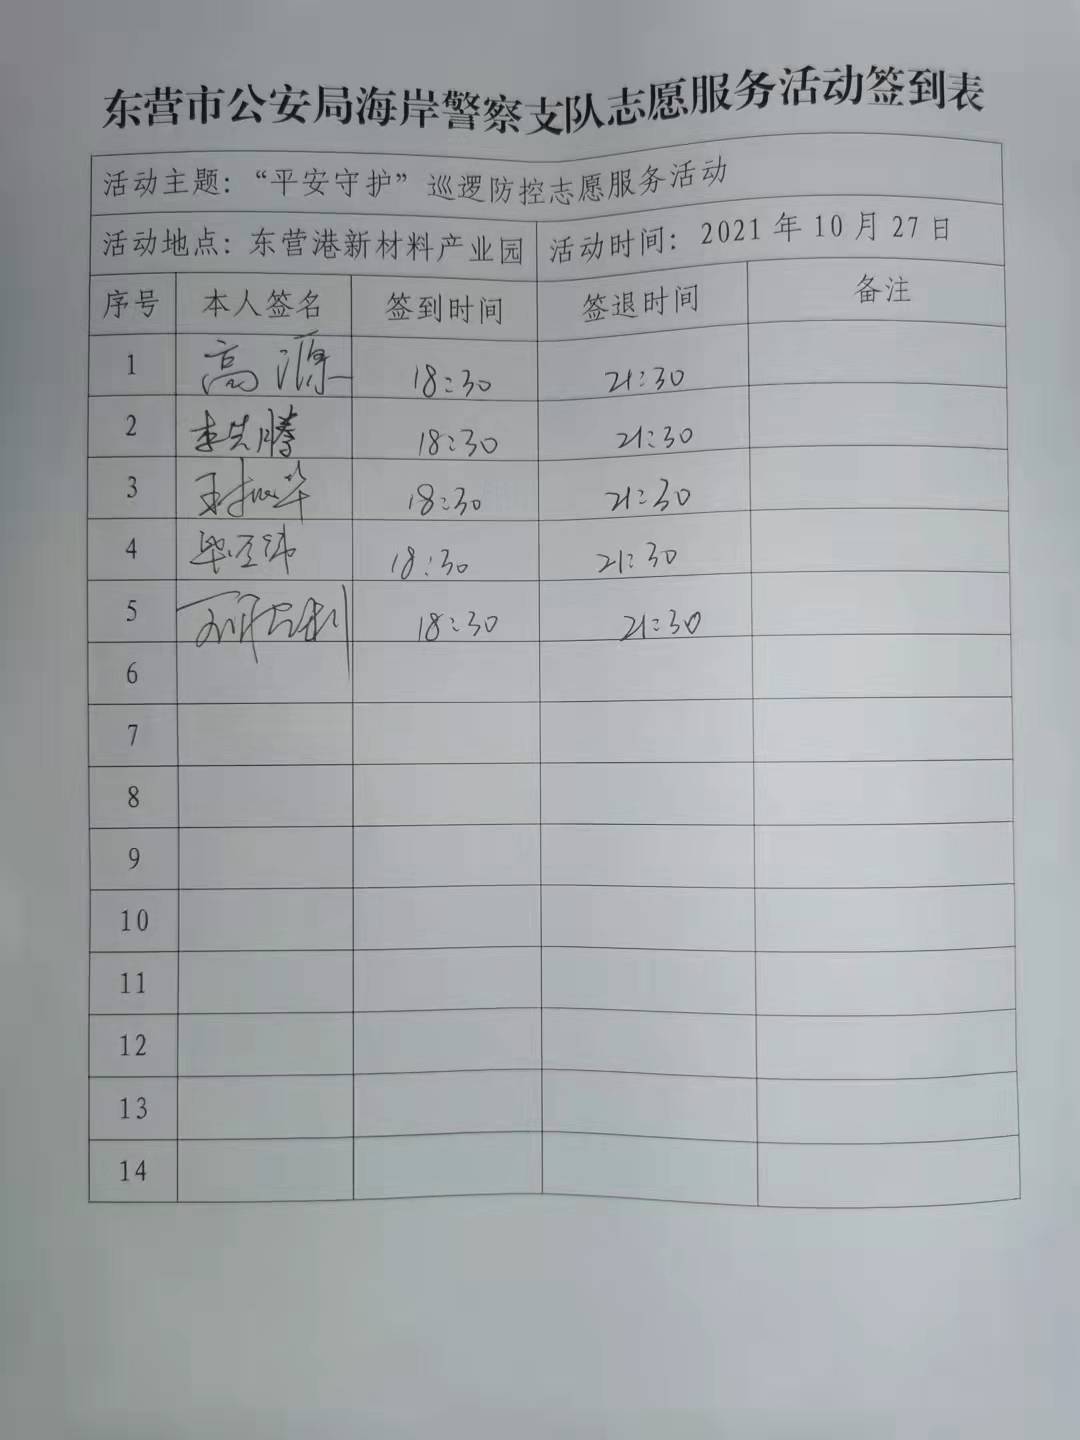 东营市公安局海岸警察支队志愿服务活动签到表
活动主题：“平安守护”巡逻防控志愿服务活动
活动地点：东营港新材料产业园 活动时间：2021年10月27日
序号 本人签名 签到时间 签退时间 备注
1 高源 18:30 21:30
2 李先腾 18:30 21:30
3 王振华 18:30 21:30
4 18:30 21:30
5 18:30 21:30
6
7
8
9
10
11
12
13
14